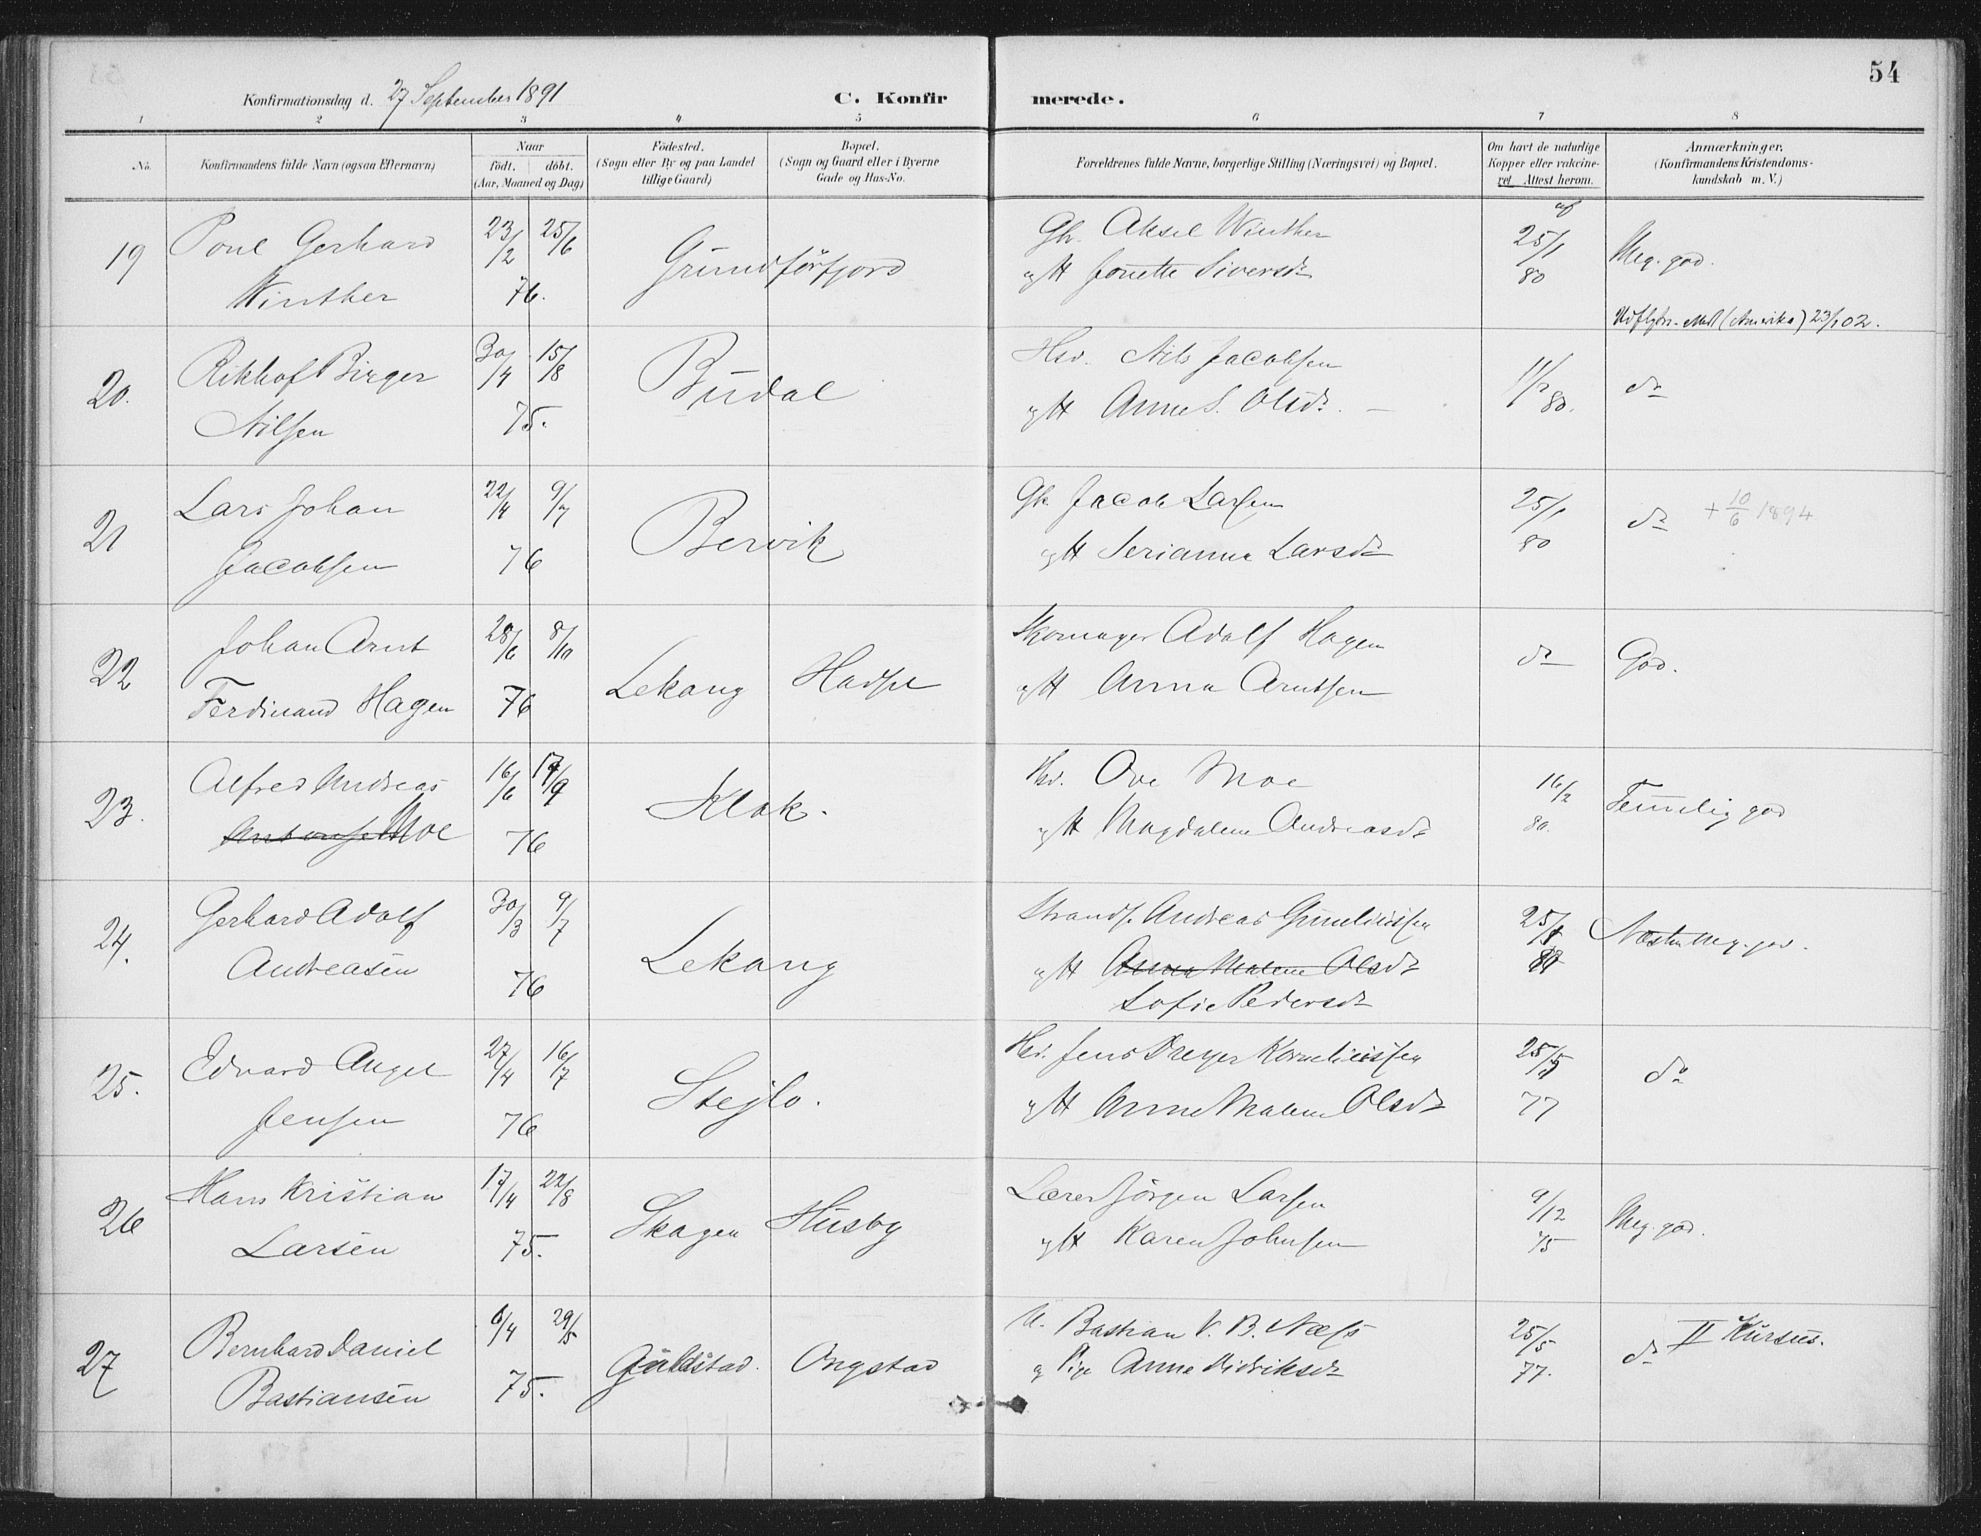 54
Konfirmationsdag d. 27 September 1891
C. Konfirmerede.
1 2 3 4 5 6 7 8
No. Konfirmandens fulde Navn (ogsaa Efternavn) Naar født. døbt. (Aar, Maaned og Dag) Fødested. (Sogn eller By og paa Landet tillige Gaard) Bopæl. (Sogn og Gaard eller i Byerne Gade og Hus-No. Forældrenes fulde Navne, borgerlige Stilling (Næringsvei) og Bopæl. Om havt de naturlige Kopper eller vakcineret Attest herom. Anmærkninger. (Konfirmandens Kristendomskundskab m. V.)
19 Poul Gerhard 23/2 25/6 Grundførfjord Gbr. Aksel Winther af 25/1 Meg. god.
Winther 76. og H Jonette Siversdr 80
Udflytn. Meld (Amerika) 23/1 02.
20. Rikhof Birger 30/4 15/8 Budal Hsd. Nils Jacobsen 11/2 do
Nilsen 75. og H Anne S. Olsdr. 80.
21 Lars Johan 22/4 9/7 Bervik Gbr Jacob Larsen 25/1 do + 10/6 1894
Jacobsen 76 og H Serianna Larsdr 80
22 Johan Arnt 28/6 8/10 Lekang Hadsel Skomager Adolf Hagen do God.
Ferdinand Hagen 76 og H Anna Arntsen
23. Alfred Andreas 16/6 17/9 Klak. Hsd. Ove Moe 16/2 Temmelig god
Antonsen Moe 76 og H Magdalene Andreasdr 80.
24. Gerhard Adolf 30/3 9/7 Lekang Strands. Andreas Gunliussen 25/1 Næsten Meg. god.
Andreasen 76 og H Anna Malene Olsdr 80
Sofie Pedersdr
25. Edvard Angel 27/4 16/7 Stejlo. Hsd. Jens Dreyer Korneliussen 25/5 do
Jensen 76 og H Anne Malene Olsdr 77
26 Hans Kristian 17/4 22/8 Skagen Husby Lærer Jørgen Larsen 9/12 Meg. god.
Larsen 75. og H Karen Johnsen 75
27 Bernhard Daniel 6/4 29/5 Guldstad. Ongstad U. Bastian V. B. Næss 25/5 do II Kursus.
Bastiansen 75. og Pige Anna Didriksdr 77.